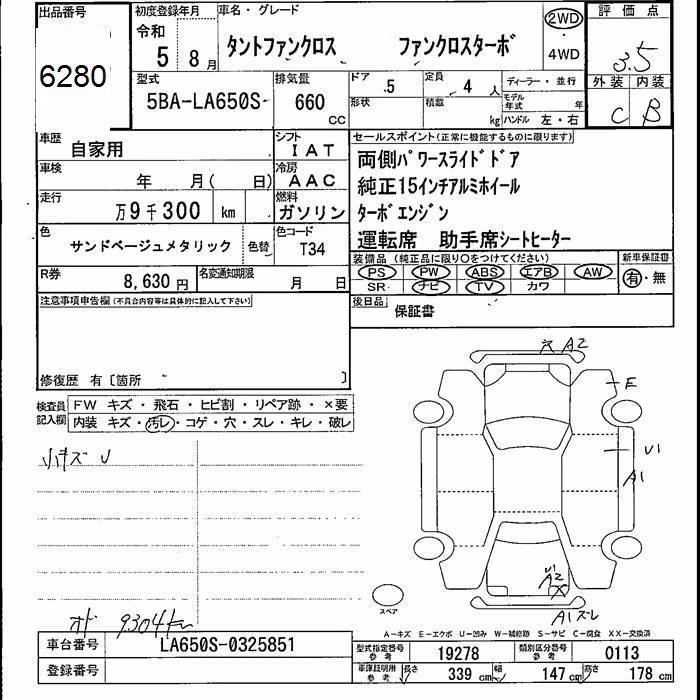 出品番号 初度登録年月 車名・グレード 評価点
6280 令和 5 8月 タントファンクロス ファンクロスターボ 2WD・4WD 3.5
外装 内装
C B
型式 排気量 ドア 5 定員 4人 ディーラー・並行
5BA-LA650S 660 CC 形状 積載 kg モデル年式 年
ハンドル 左・右
車歴 自家用 シフト IAT セールスポイント(正常に機能するものに限ります)
車検 年 月( 日) 冷房 AAC 両側パワースライドドア
純正15インチアルミホイール
走行 万9千300 km 燃料 ガソリン ターボエンジン
色 サンドベージュメタリック 色替 色コード T34 運転席 助手席シートヒーター
R券 8,630円 名変通知期限 月 日 装備品(純正品に限り○をつけてください) 新車保証書
PS PW ABS エアB AW 有・無
SR ナビ TV カワ
注意事項申告欄(不具合内容等は具体的に記入して下さい) 後日品 保証書
修復歴 有〔箇所 〕
検査員記入欄 FW キズ・飛石・ヒビ割・リペア跡・×要
内装 キズ・汚レ・コゲ・穴・スレ・キレ・破レ
小キズ U
穴 A2
E
U1
A1
U1
A2
X
A1 ズレ
スペア
オド 9304km
A-キズ E-エクボ U-凹み W-補修跡 S-サビ C-腐食 XX-交換済
車台番号 LA650S-0325851 型式指定番号 参考 19278 類別区分番号 参考 0113
登録番号 車庫証明用 参考 長さ 339 cm 幅 147 cm 高さ 178 cm